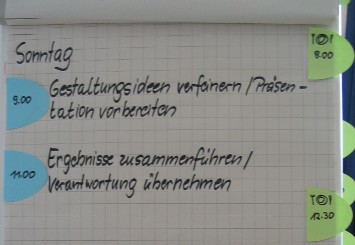 Sonntag
8.00
9.00
Gestaltungsideen verfeinern / Präsen-
tation vorbereiten
11.00
Ergebnisse zusammenführen /
Verantwortung übernehmen
12.30